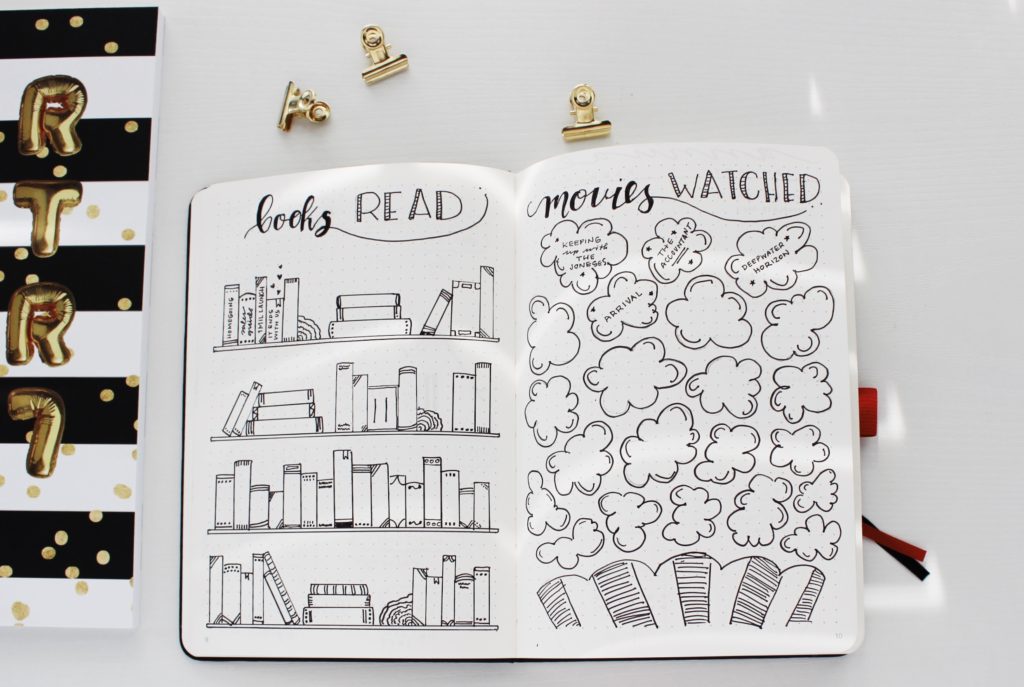 R
T
R
7
books READ
HOMEGOING
IT ENDS
WITH US
movies WATCHED
KEEPING
up with
THE
JONESES
THE
ACCOUNTANT
DEEPWATER
HORIZON
ARRIVAL
10